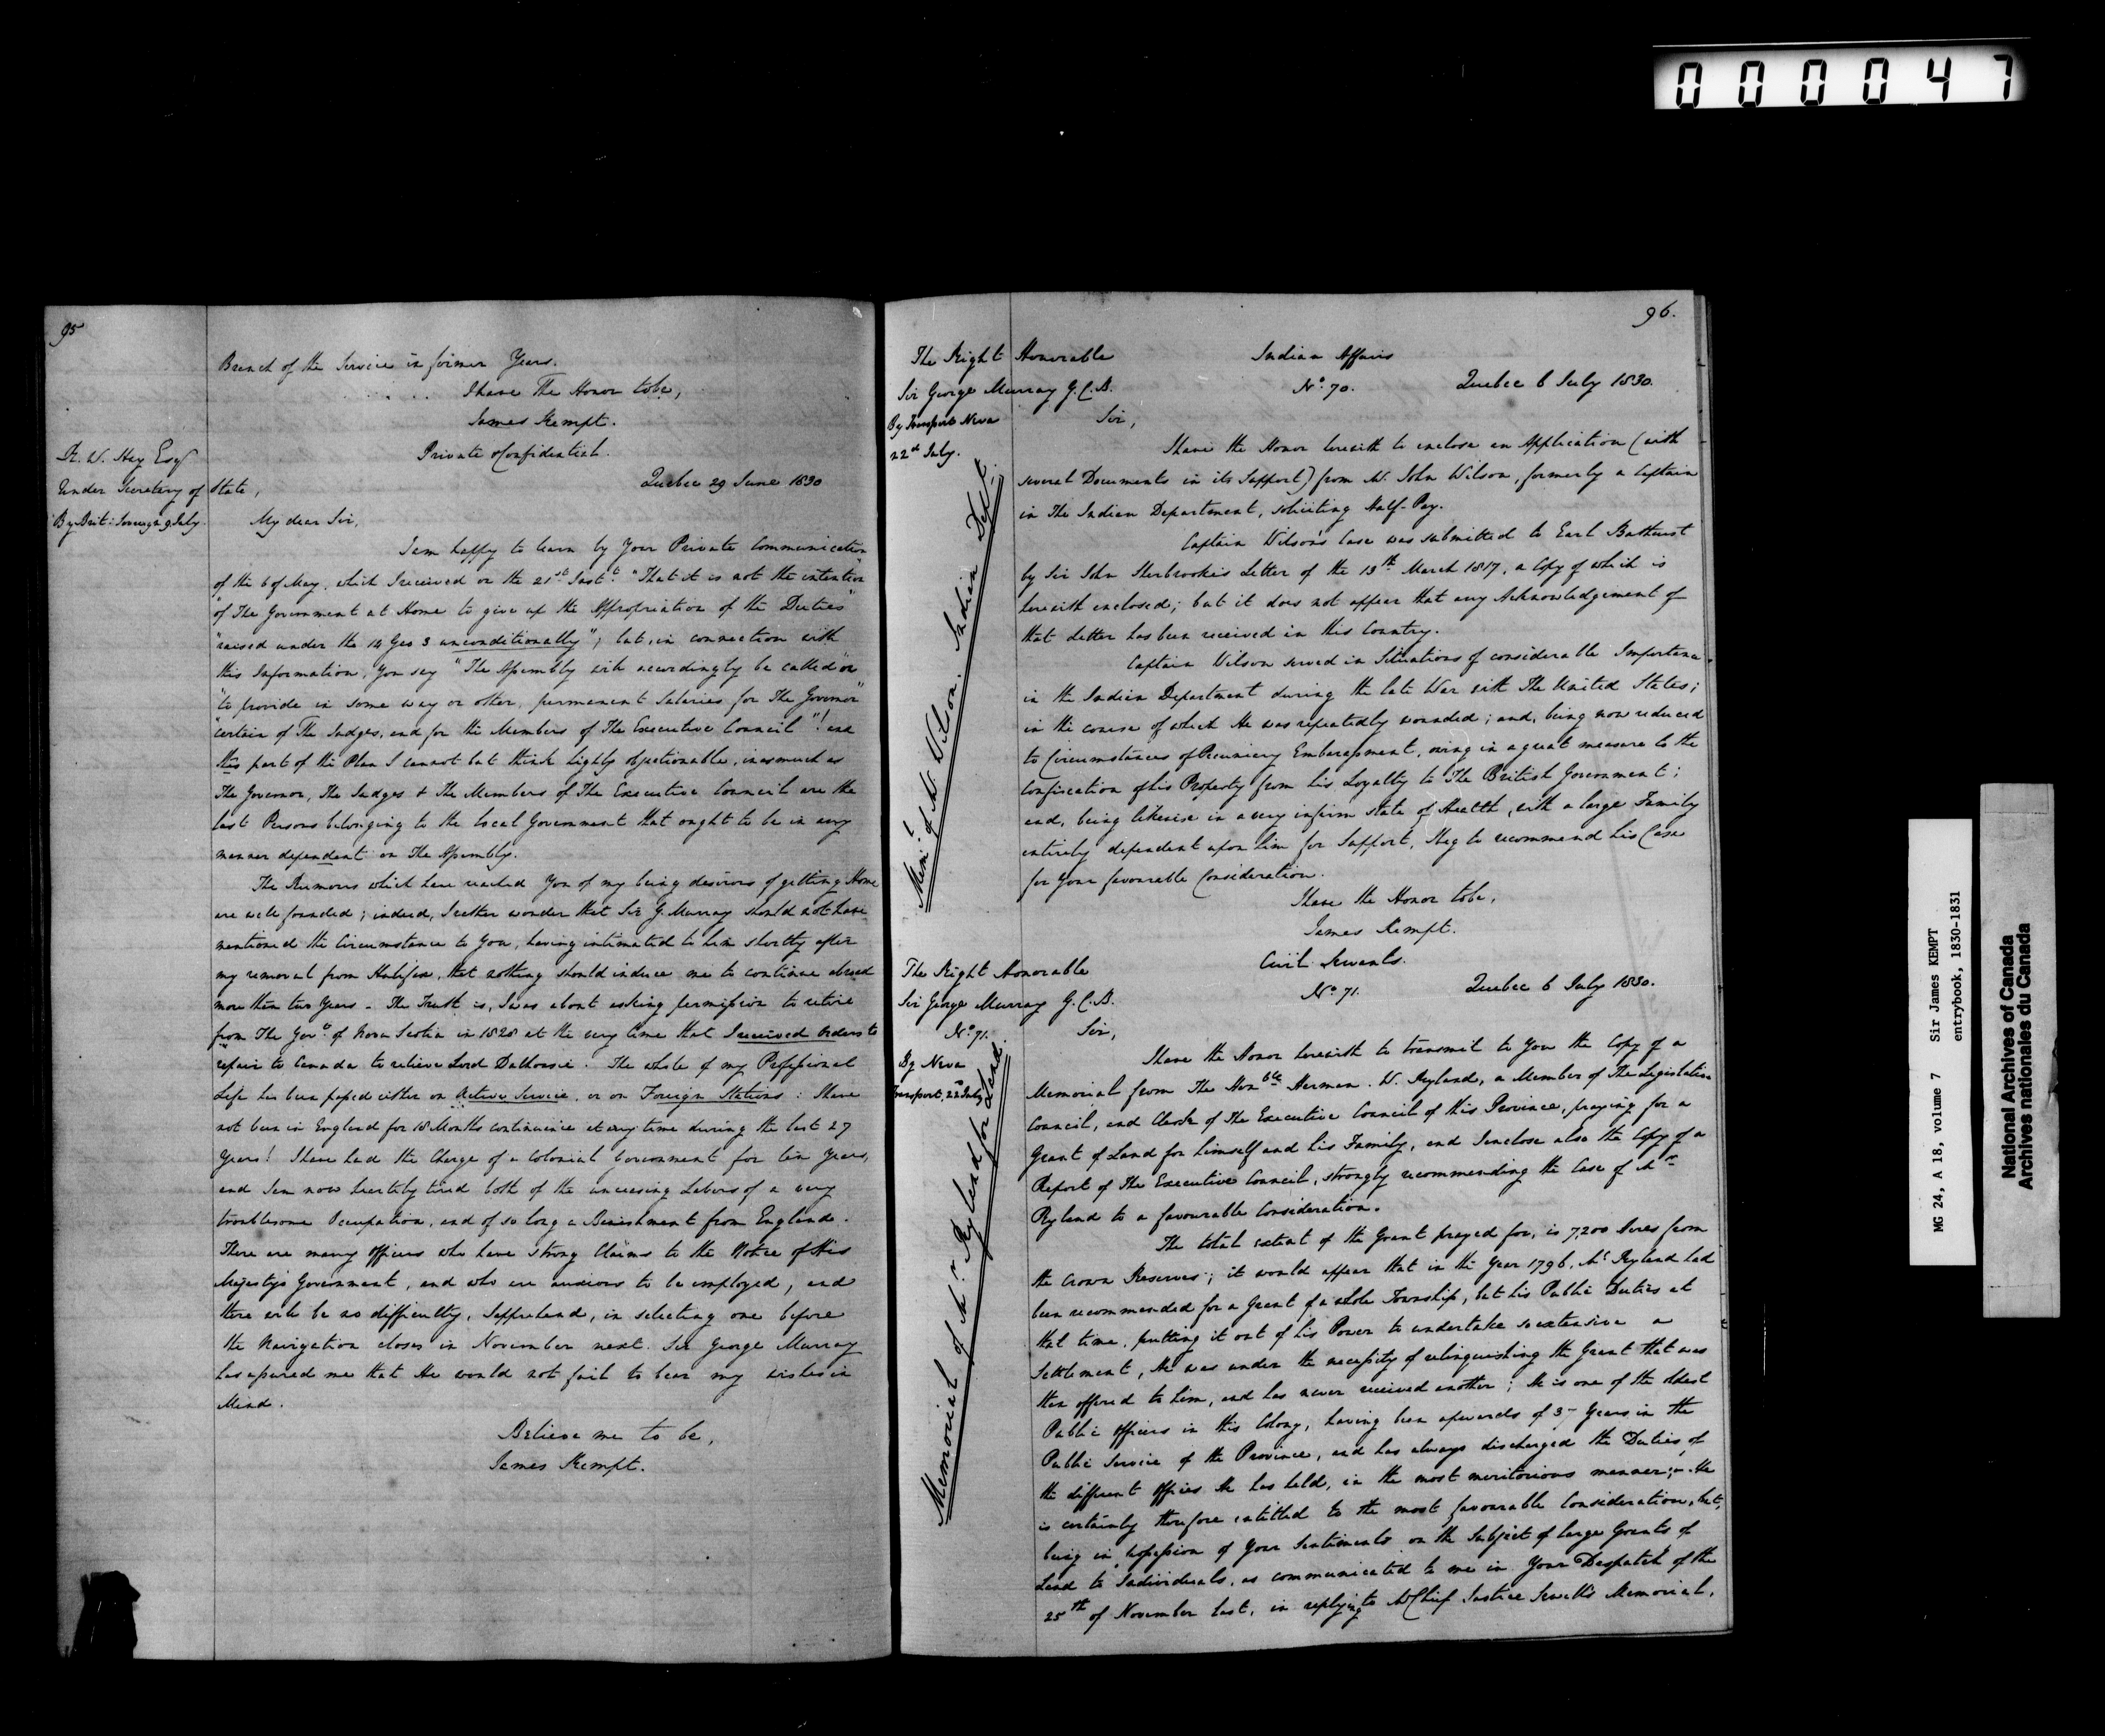 000047
95
Branch of the Service in former Years.
I have The Honor to be,
James Kempt.
Private & Confidential.
R. W. Hay Esqr
Under Secretary of State,
Quebec 29 June 1830
By Brit: 9 July.
My dear Sir,
I am happy to learn by Your Private Communication
of the 6 of May, which I received on the 21st Inst: "That it is not the intention
"of The Government at Home to give up the Appropriation of the Duties"
"raised under the 14 Geo 3 unconditionally"; but, in connection with
this Information, You say "The Assembly will accordingly be called on
"to provide in some way or other, permanent Salaries for The Governor"
"certain of The Judges, and for the Members of The Executive Council"! and
this part of the Plan I cannot but think highly objectionable, inasmuch as
The Governor, The Judges & The Members of The Executive Council are the
last Persons belonging to the local Government that ought to be in any
manner dependent on The Assembly.
The Rumours which have reached You of my being desirous of getting Home
are well founded; indeed, I rather wonder that Sir G. Murray should not have
mentioned the Circumstance to You, having intimated to him shortly after
my removal from Halifax, that nothing should induce me to continue abroad
more than two Years - The Truth is, I was about asking permission to retire
from The Govt. of Nova Scotia in 1828 at the very time that I received Orders to
repair to Canada to relieve Lord Dalhousie. The whole of my Professional
Life has been passed either on Active Service, or on Foreign Stations: I have
not been in England for 18 Months continuance at any time during the last 27
Years! I have had the Charge of a Colonial Government for ten Years,
and I am now heartily tired both of the unceasing Labors of a very
troublesome Occupation, and of so long a Banishment from England.
There are many Officers who have strong Claims to the Notice of His
Majesty's Government, and who are anxious to be employed, and
there will be no difficulty, I apprehend, in selecting one before
the Navigation closes in November next. Sir George Murray
has assured me that He would not fail to bear my wishes in
Mind.
Believe me to be,
James Kempt.
96.
The Right Honorable
Sir George Murray G.C.B.
By Transport Neva
22d July.
Indian Affairs
No. 70.
Quebec 6 July 1830.
Sir,
Meml. of Mr. Wilson. Indian Dept.
I have the Honor herewith to enclose an Application (with
several Documents in its Support) from Mr. John Wilson, formerly a Captain
in The Indian Department, soliciting Half-Pay.
Captain Wilson's Case was submitted to Earl Bathurst
by Sir John Sherbrooke's Letter of the 13th March 1817, a Copy of which is
herewith enclosed; but it does not appear that any Acknowledgement of
that Letter has been received in this Country.
Captain Wilson served in Situations of considerable Importance
in the Indian Department during the late War with The United States;
in the course of which He was repeatedly wounded; and, being now reduced
to Circumstances of Pecuniary Embarassment, owing in a great measure to the
Confiscation of his Property from his Loyalty to The British Government;
and, being likewise in a very infirm state of Health, with a large Family
entirely dependent upon him for Support, I beg to recommend his Case
for Your favourable Consideration.
I have the Honor to be,
James Kempt.
The Right Honorable
Sir George Murray G.C.B.
No. 71.
By Neva
Transport, 22d July
Civil Servants.
No. 71.
Quebec 6 July 1830.
Sir,
Memorial of Mr. Ryland for Land.
I have the Honor herewith to transmit to You the Copy of a
Memorial from The Honble Herman W. Ryland, a Member of The Legislative
Council, and Clerk of The Executive Council of this Province, praying for a
Grant of Land for himself and his Family, and I enclose also the Copy of a
Report of The Executive Council, strongly recommending the Case of Mr
Ryland to a favourable Consideration.
The total extent of the Grant prayed for, is 7,200 Acres from
the Crown Reserves; it would appear that in the Year 1796, Mr Ryland had
been recommended for a Grant of a whole Township, but his Public Duties at
that time, putting it out of his Power to undertake so extensive a
Settlement, He was under the necessity of relinquishing the Grant that was
then offered to him, and has never received another; He is one of the oldest
Public Officers in this Colony, having been upwards of Years in the
Public Service of the Province, and has always discharged the Duties of
the different Offices He has held, in the most meritorious manner; - He
is certainly therefore intitled to the most favourable Consideration, but,
being in possession of Your Sentiments on the Subject of large Grants of
Land to Individuals, as communicated to me in Your Despatch of the
25th of November last, in replying to Mr Chief Justice Sewell's Memorial,
MG 24, A 18, volume 7 Sir James KEMPT
entrybook, 1830-1831
National Archives of Canada
Archives nationales du Canada